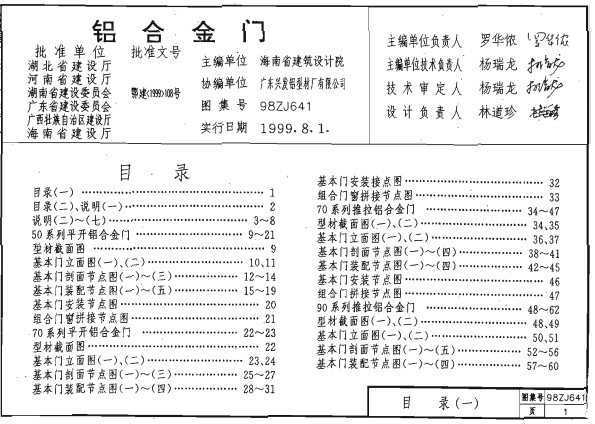 铝合金门
批准单位 批准文号
湖北省建设厅
河南省建设厅
湖南省建设委员会 鄂建(1999)108号
广东省建设委员会
广西壮族自治区建设厅
海南省建设厅
主编单位 海南省建筑设计院
协编单位 广东兴发铝型材厂有限公司
图集号 98ZJ641
实行日期 1999.8.1.
主编单位负责人 罗华侬
主编单位技术负责人 杨瑞龙
技术审定人 杨瑞龙
设计负责人 林道珍
目录
目录(一) 1
目录(二)、说明(一) 2
说明(二)~(七) 3~8
50系列平开铝合金门 9~21
型材截面图 9
基本门立面图(一)、(二) 10,11
基本门剖面节点图(一)~(三) 12~14
基本门装配节点图(一)~(五) 15~19
基本门安装节点图 20
组合门窗拼接节点图 21
70系列平开铝合金门 22~23
型材截面图 22
基本门立面图(一)、(二) 23,24
基本门剖面节点图(一)~(三) 25~27
基本门装配节点图(一)~(四) 28~31
基本门安装接点图 32
组合门窗拼接点图 33
70系列推拉铝合金门 34~47
型材截面图(一)、(二) 34,35
基本门立面图(一)、(二) 36,37
基本门剖面节点图(一)~(四) 38~41
基本门装配节点图(一)~(四) 42~45
基本门安装节点图 46
组合门拼接节点图 47
90系列推拉铝合金门 48~62
型材截面图(一)、(二) 48,49
基本门立面图(一)、(二) 50,51
基本门剖面节点图(一)~(五) 52~56
基本门装配节点图(一)~(四) 57~60
目录(一)
图集号 98ZJ641
页 1